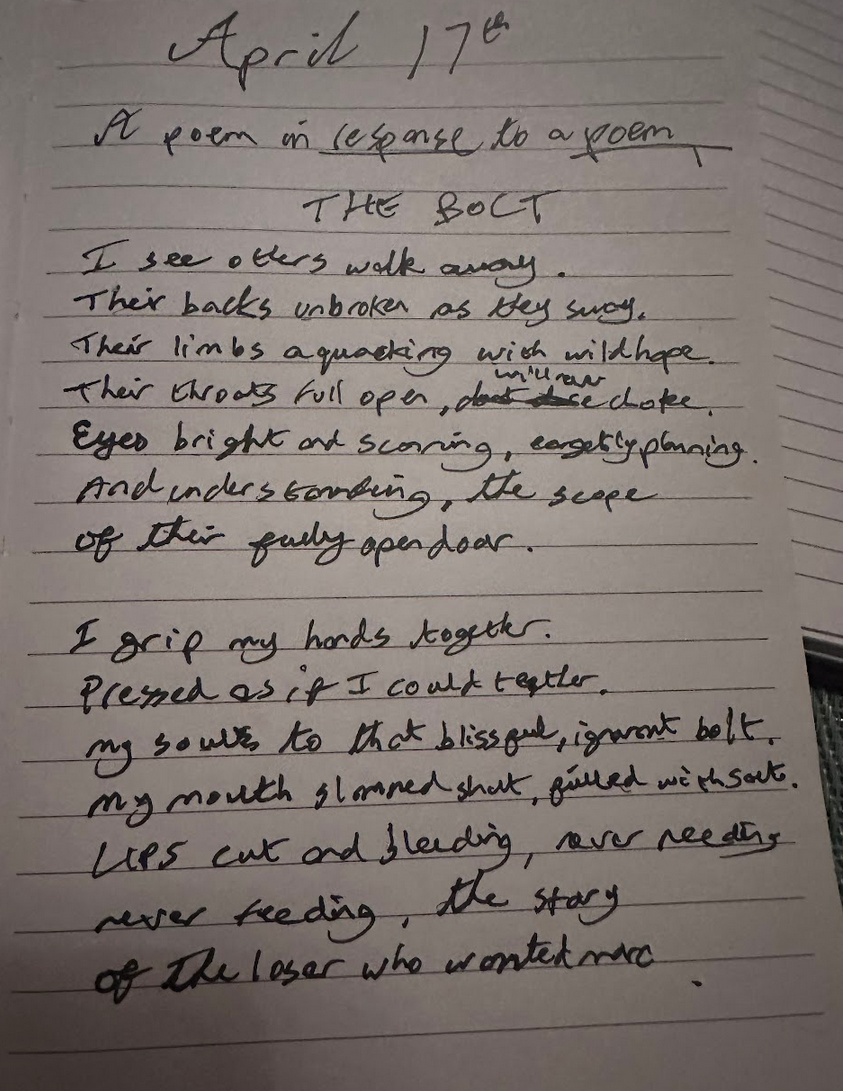 April 17th
A poem in response to a poem
THE BOLT
I see others walk away.
Their backs unbroken as they sway.
Their limbs aquacking with wild hope.
will never
Their throats full open, choke.
Eyes bright and scanning, planning.
And understanding, the scope
of their fully open door.
I grip my hands together.
Pressed as if I could teather.
my souls to that blissful, ignorant bolt.
my mouth slammed shut, filled with salt.
Lips cut and bleeding, never needing
never feeding, the story
of the loser who wanted more.